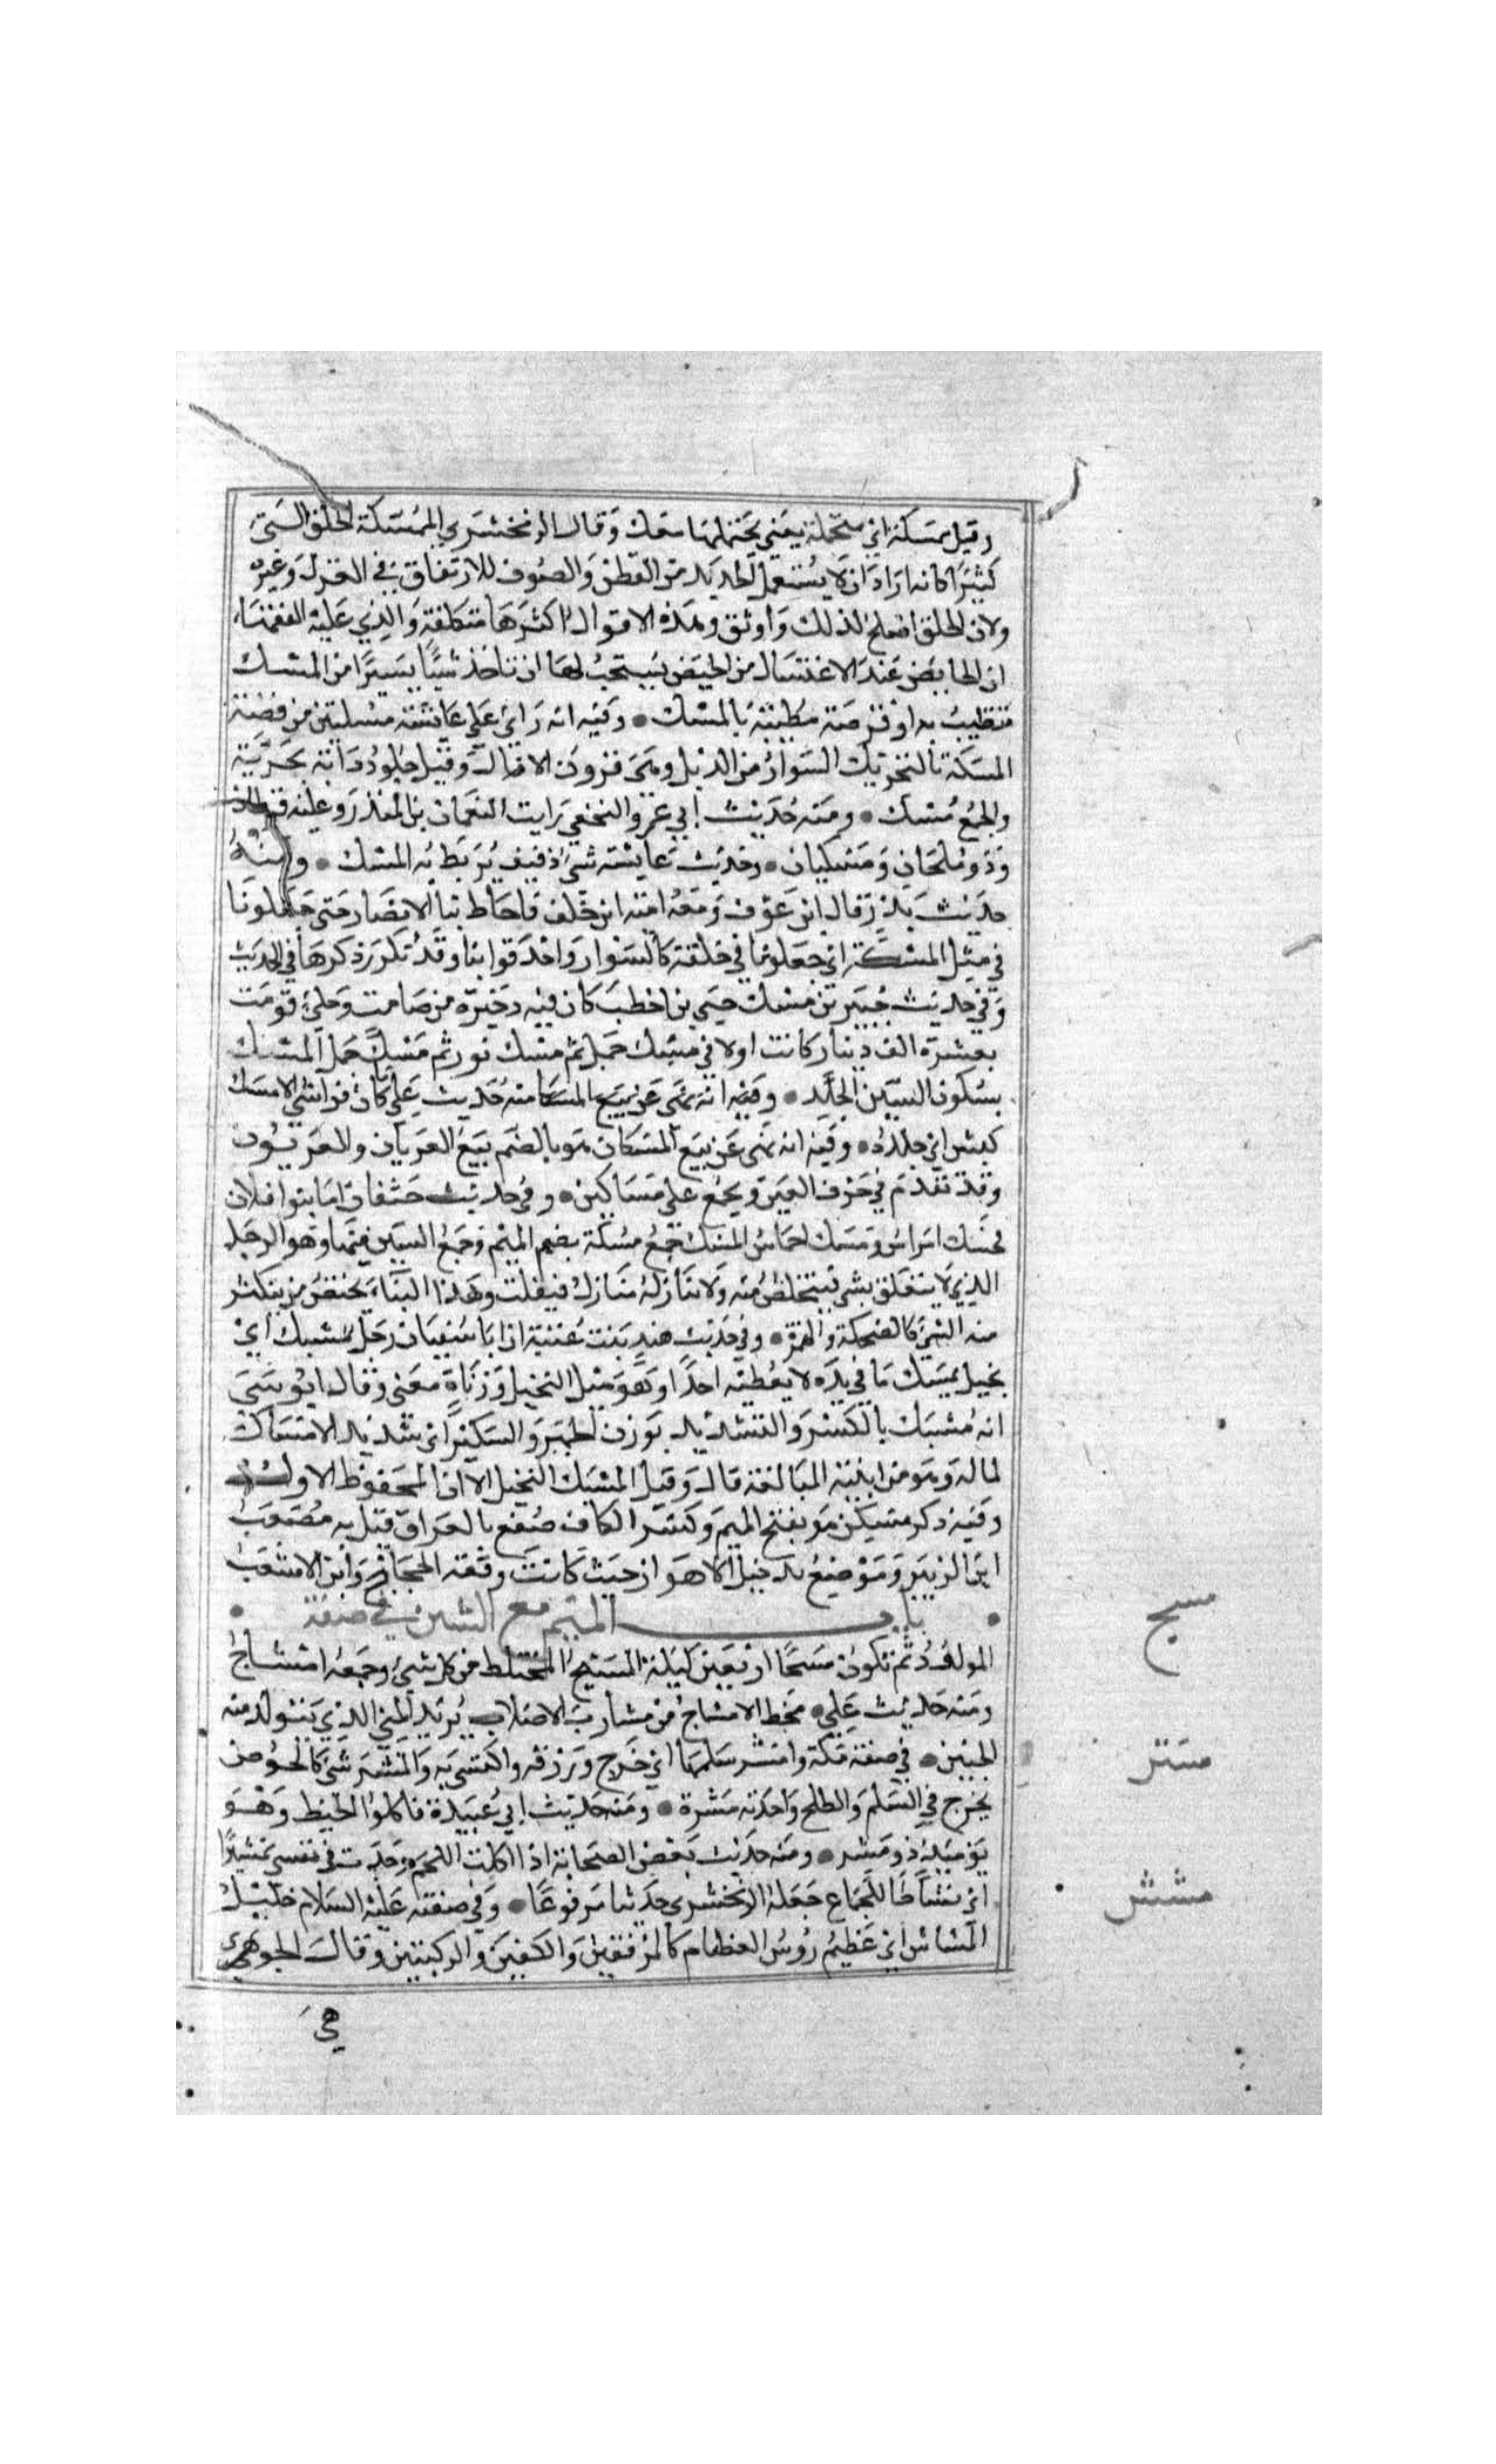 وقيل ممسكة اي متحملة يعني تحتملها معك وقال الزمخشري الممسكة الخلق التي
كثيرا كانه اراد ان لا يستعمل الجديد من القطن والصوف للارتفاق في الغزل وغيره
ولان الخلق اصلح لذلك واوثق وهذه الاقوال اكثرها متكلفة والذي عليه الفقهاء
ان الحايض عند الاغتسال من الحيض يستحب لها ان تاخذ شيئا يسيرا من المسك
تتطيب به او فرصة مطيبة بالمسك • وفيه انه راى على عايشة مسكتين من فضة
المسكة بالتحريك السوار من الذبل وهي قرون الاوعال وقيل جلود دابة بحرية
والجمع مسك • ومنه حديث ابي عمرو النخعي رايت النعمان بن المنذر وعليه قرطان
ودملجان ومسكتان • وحديث عايشة شيء ذفيف يربط به المسك • ومنه
حديث بدر قال ابن عوف ومعه امية ابن خلف فاحاط بنا الانصار حتى جعلونا
في مثل المسكة اي جعلونا في حلقة كالسوار واحدقوا بنا وقد تكرر ذكرها في الحديث
وفي حديث خيبر بن مسك حيي بن اخطب كان فيه دخيرة من صامت وحلي قومت
بعشرة الف دينار كانت اولا في مسك حمل ثم مسك ثور ثم مسك جمل المسك
بسكون السين الجلد • وفيه انه نهى عن بيع المسكا منه حديث علي ما كان فراشي الا مسك
كبش اي جلده • وفيه انه نهى عن بيع المسكان هو بالضم بيع العربان والعربون
وقد تقدم في حرف العين ويجمع على مساكين • وفي حديث خثفان اما بنوا فلان
فحسك امراس ومسك احماس المسك جمع مسكة بضم الميم وجمع السين فيهما وهو الرجل
الذي لا يتعلق بشي فيتخلص منه ولا ينازله منازل فيفلت وهذا البناء يختص بمن يكثر
منه الشي كالضحكة والهمزة • وفي حديث هند بنت عتبة ان ابا سفيان رجل مسيك اي
بخيل يمسك ما في يده لا يعطيه احدا وهو مثل البخيل وزناة معنى وقال ابو موسى
انه مسيك بالكسر والتشديد بوزن الخمير والسكير اي شديد الامساك
لماله وهو من ابنية المبالغة قال وقيل المسيك البخيل الا ان المحفوظ الاول
وفيه ذكر مسكن هو بفتح الميم وكسر الكاف صقع بالعراق قتل به مصعب
ابن الزبير وموضع بدجيل الاهواز حيث كانت وقعة الحجاج وابن الاشعب
• باب الميم مع الشين في صفة •
المولود ثم تكون مشجا اربعين ليلة المشيج المختلط من كل شيء وجمعه امشاج
ومنه حديث علي • محط الامشاج من مشارب الاصلاب يريد المني الذي يتولد منه
الجنين • في صفة مكة وامشر سلمها اي خرج ورقه واكتسى به والمشر شي كالخوص
يخرج في السلم والطلح واحدته مشرة • ومنه حديث ابي عبيدة فاكلوا الخبط وهو
يوميذ ذو مشر • ومنه حديث بعض الصحابة اذا اكلت اللحم وجدت في نفسي تمشيرا
اي نشاطا للجماع جعله الزمخشري حديثا مرفوعا • وفي صفته عليه السلام جليل
المشاش اي عظيم رؤس العظام كالمرفقين والكفين والركبتين وقال الجوهري
هي
مسج
مشر
مشش